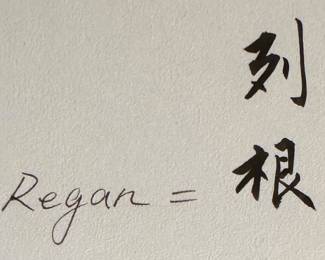 Regan = 列根